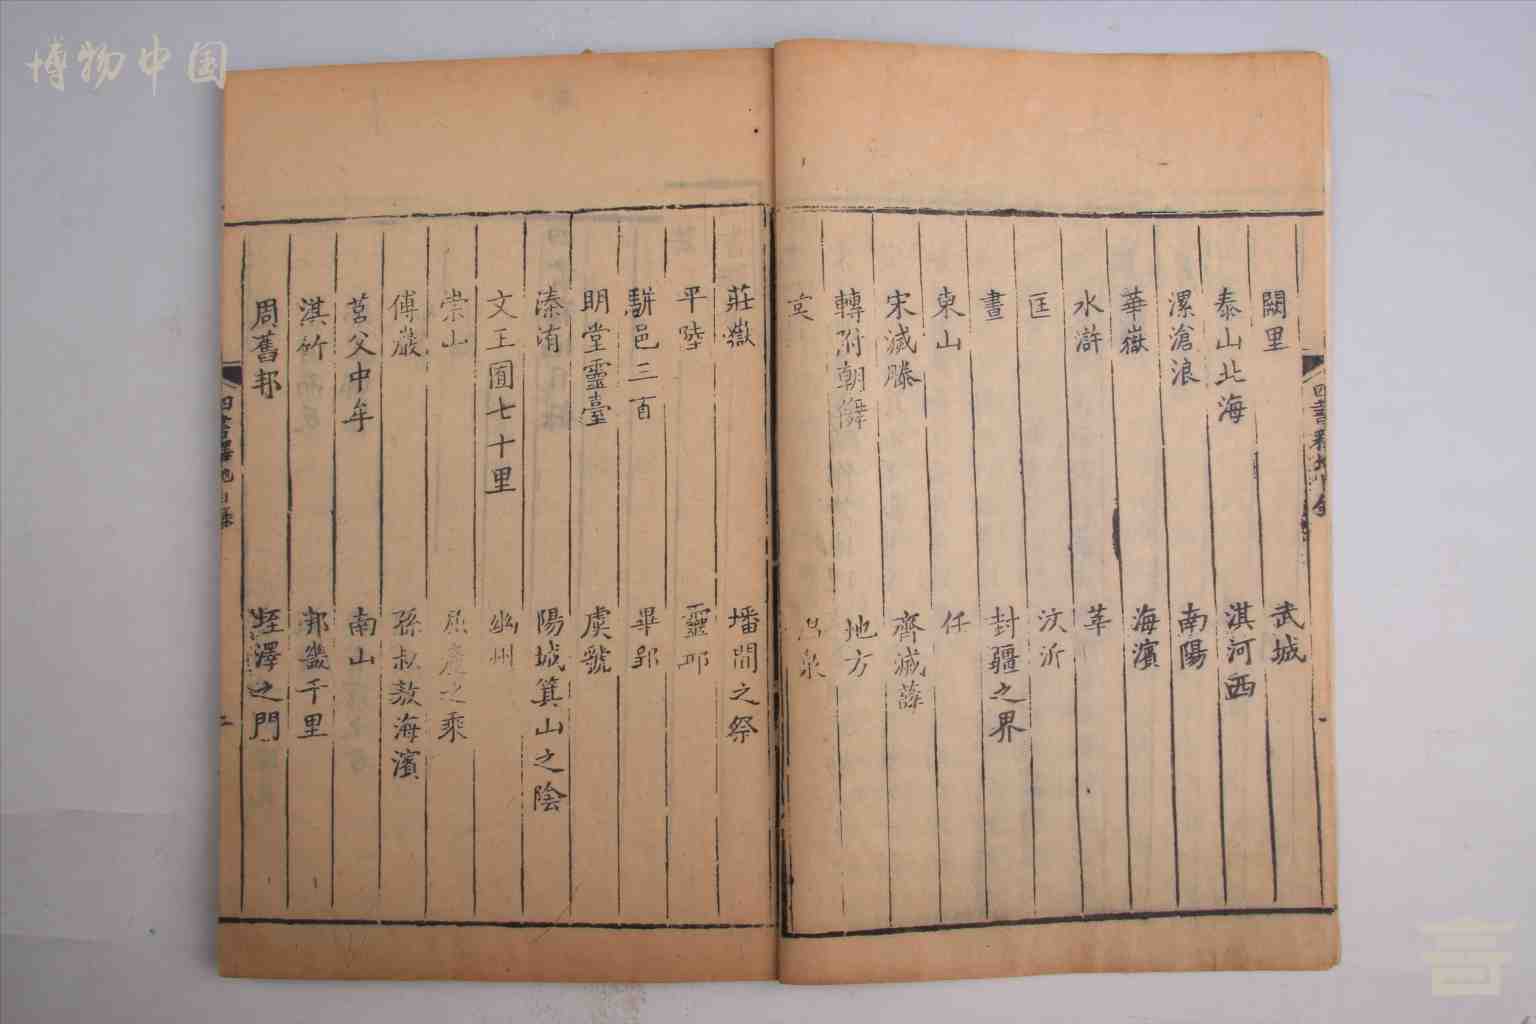 博物中国
闕里　武城
泰山北海　淇河西
漯滄浪　南陽
華嶽　海濱
水滸　莘
匡　汶沂
晝　封疆之界
東山　任
宋滅滕　齊滅薛
轉附朝儛　地方
莊嶽　墦間之祭
平陸　靈邱
駢邑三百　畢郢
明堂靈臺　虞虢
溱洧　陽城箕山之陰
文王囿七十里　幽州
崇山　屈產之乘
傅巖　孫叔敖海濱
莒父中牟　南山
淇竹　邦畿千里
周舊邦　垤澤之門
二